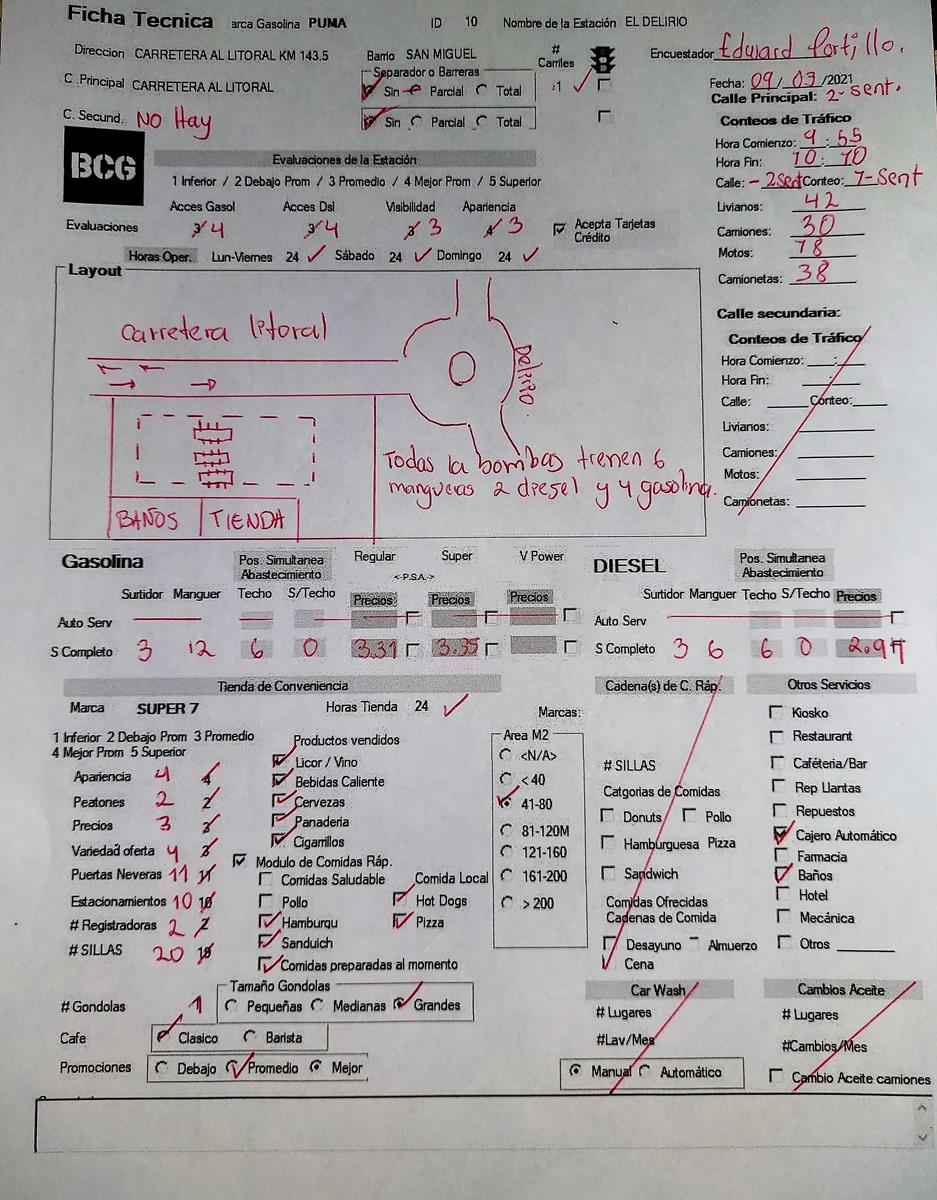 Ficha Tecnica arca Gasolina PUMA ID 10 Nombre de la Estación EL DELIRIO
Direccion CARRETERA AL LITORAL KM 143.5 Barrio SAN MIGUEL # Carriles Encuestador Edward Portillo.
C .Principal CARRETERA AL LITORAL Separador o Barreras Sin Parcial Total 1
Fecha: 09/ 03 /2021
Calle Principal: 2-sent.
C. Secund. NO Hay Sin Parcial Total
Conteos de Tráfico
Hora Comienzo: 9 : 55
Hora Fin: 10: 10
Calle: - 2sent Conteo: 1-sent
Livianos: 42
Camiones: 30
Motos: 78
Camionetas: 38
BCG
Evaluaciones de la Estación
1 Inferior / 2 Debajo Prom / 3 Promedio / 4 Mejor Prom / 5 Superior
Acces Gasol Acces Dsl Visibilidad Apariencia
Evaluaciones 3 4 3 4 3 3 4 3 Acepta Tarjetas Crédito
Horas Oper. Lun-Viernes 24 Sábado 24 Domingo 24
Layout
Carretera litoral
Delirio.
Todas la bombas tienen 6
mangueras 2 diesel y 4 gasolina.
BAÑOS TIENDA
Calle secundaria:
Conteos de Tráfico
Hora Comienzo: :
Hora Fin: :
Calle: Conteo:
Livianos:
Camiones:
Motos:
Camionetas:
Gasolina Pos. Simultanea Abastecimiento Regular Super V Power
<-P.S.A.->
Surtidor Manguer Techo S/Techo Precios Precios Precios
Auto Serv
S Completo 3 12 6 0 3.31 3.55
DIESEL Pos. Simultanea Abastecimiento
Surtidor Manguer Techo S/Techo Precios
Auto Serv
S Completo 3 6 6 0
Tienda de Conveniencia
Marca SUPER 7 Horas Tienda 24
1 Inferior 2 Debajo Prom 3 Promedio
4 Mejor Prom 5 Superior
Apariencia 4 4
Peatones 2 2
Precios 3 3
Variedad oferta 4 3
Puertas Neveras 11 11
Estacionamientos 10 10
# Registradoras 2 2
# SILLAS 20
Productos vendidos
Licor / Vino
Bebidas Caliente
Cervezas
Panaderia
Cigarrillos
Modulo de Comidas Ráp.
Comidas Saludable Comida Local
Pollo Hot Dogs
Hamburgu Pizza
Sanduich
Comidas preparadas al momento
Marcas:
Area M2
<N/A>
< 40
41-80
81-120M
121-160
161-200
> 200
# Gondolas 1 Tamaño Gondolas Pequeñas Medianas Grandes
Cafe Clasico Barista
Promociones Debajo Promedio Mejor
Cadena(s) de C. Ráp.
# SILLAS
Catgorias de Comidas
Donuts Pollo
Hamburguesa Pizza
Sandwich
Comidas Ofrecidas
Cadenas de Comida
Desayuno Almuerzo
Cena
Otros Servicios
Kiosko
Restaurant
Caféteria/Bar
Rep Llantas
Repuestos
Cajero Automático
Farmacia
Baños
Hotel
Mecánica
Otros
Car Wash
# Lugares
#Lav/Mes
Manual Automático
Cambios Aceite
# Lugares
#Cambios/Mes
Cambio Aceite camiones